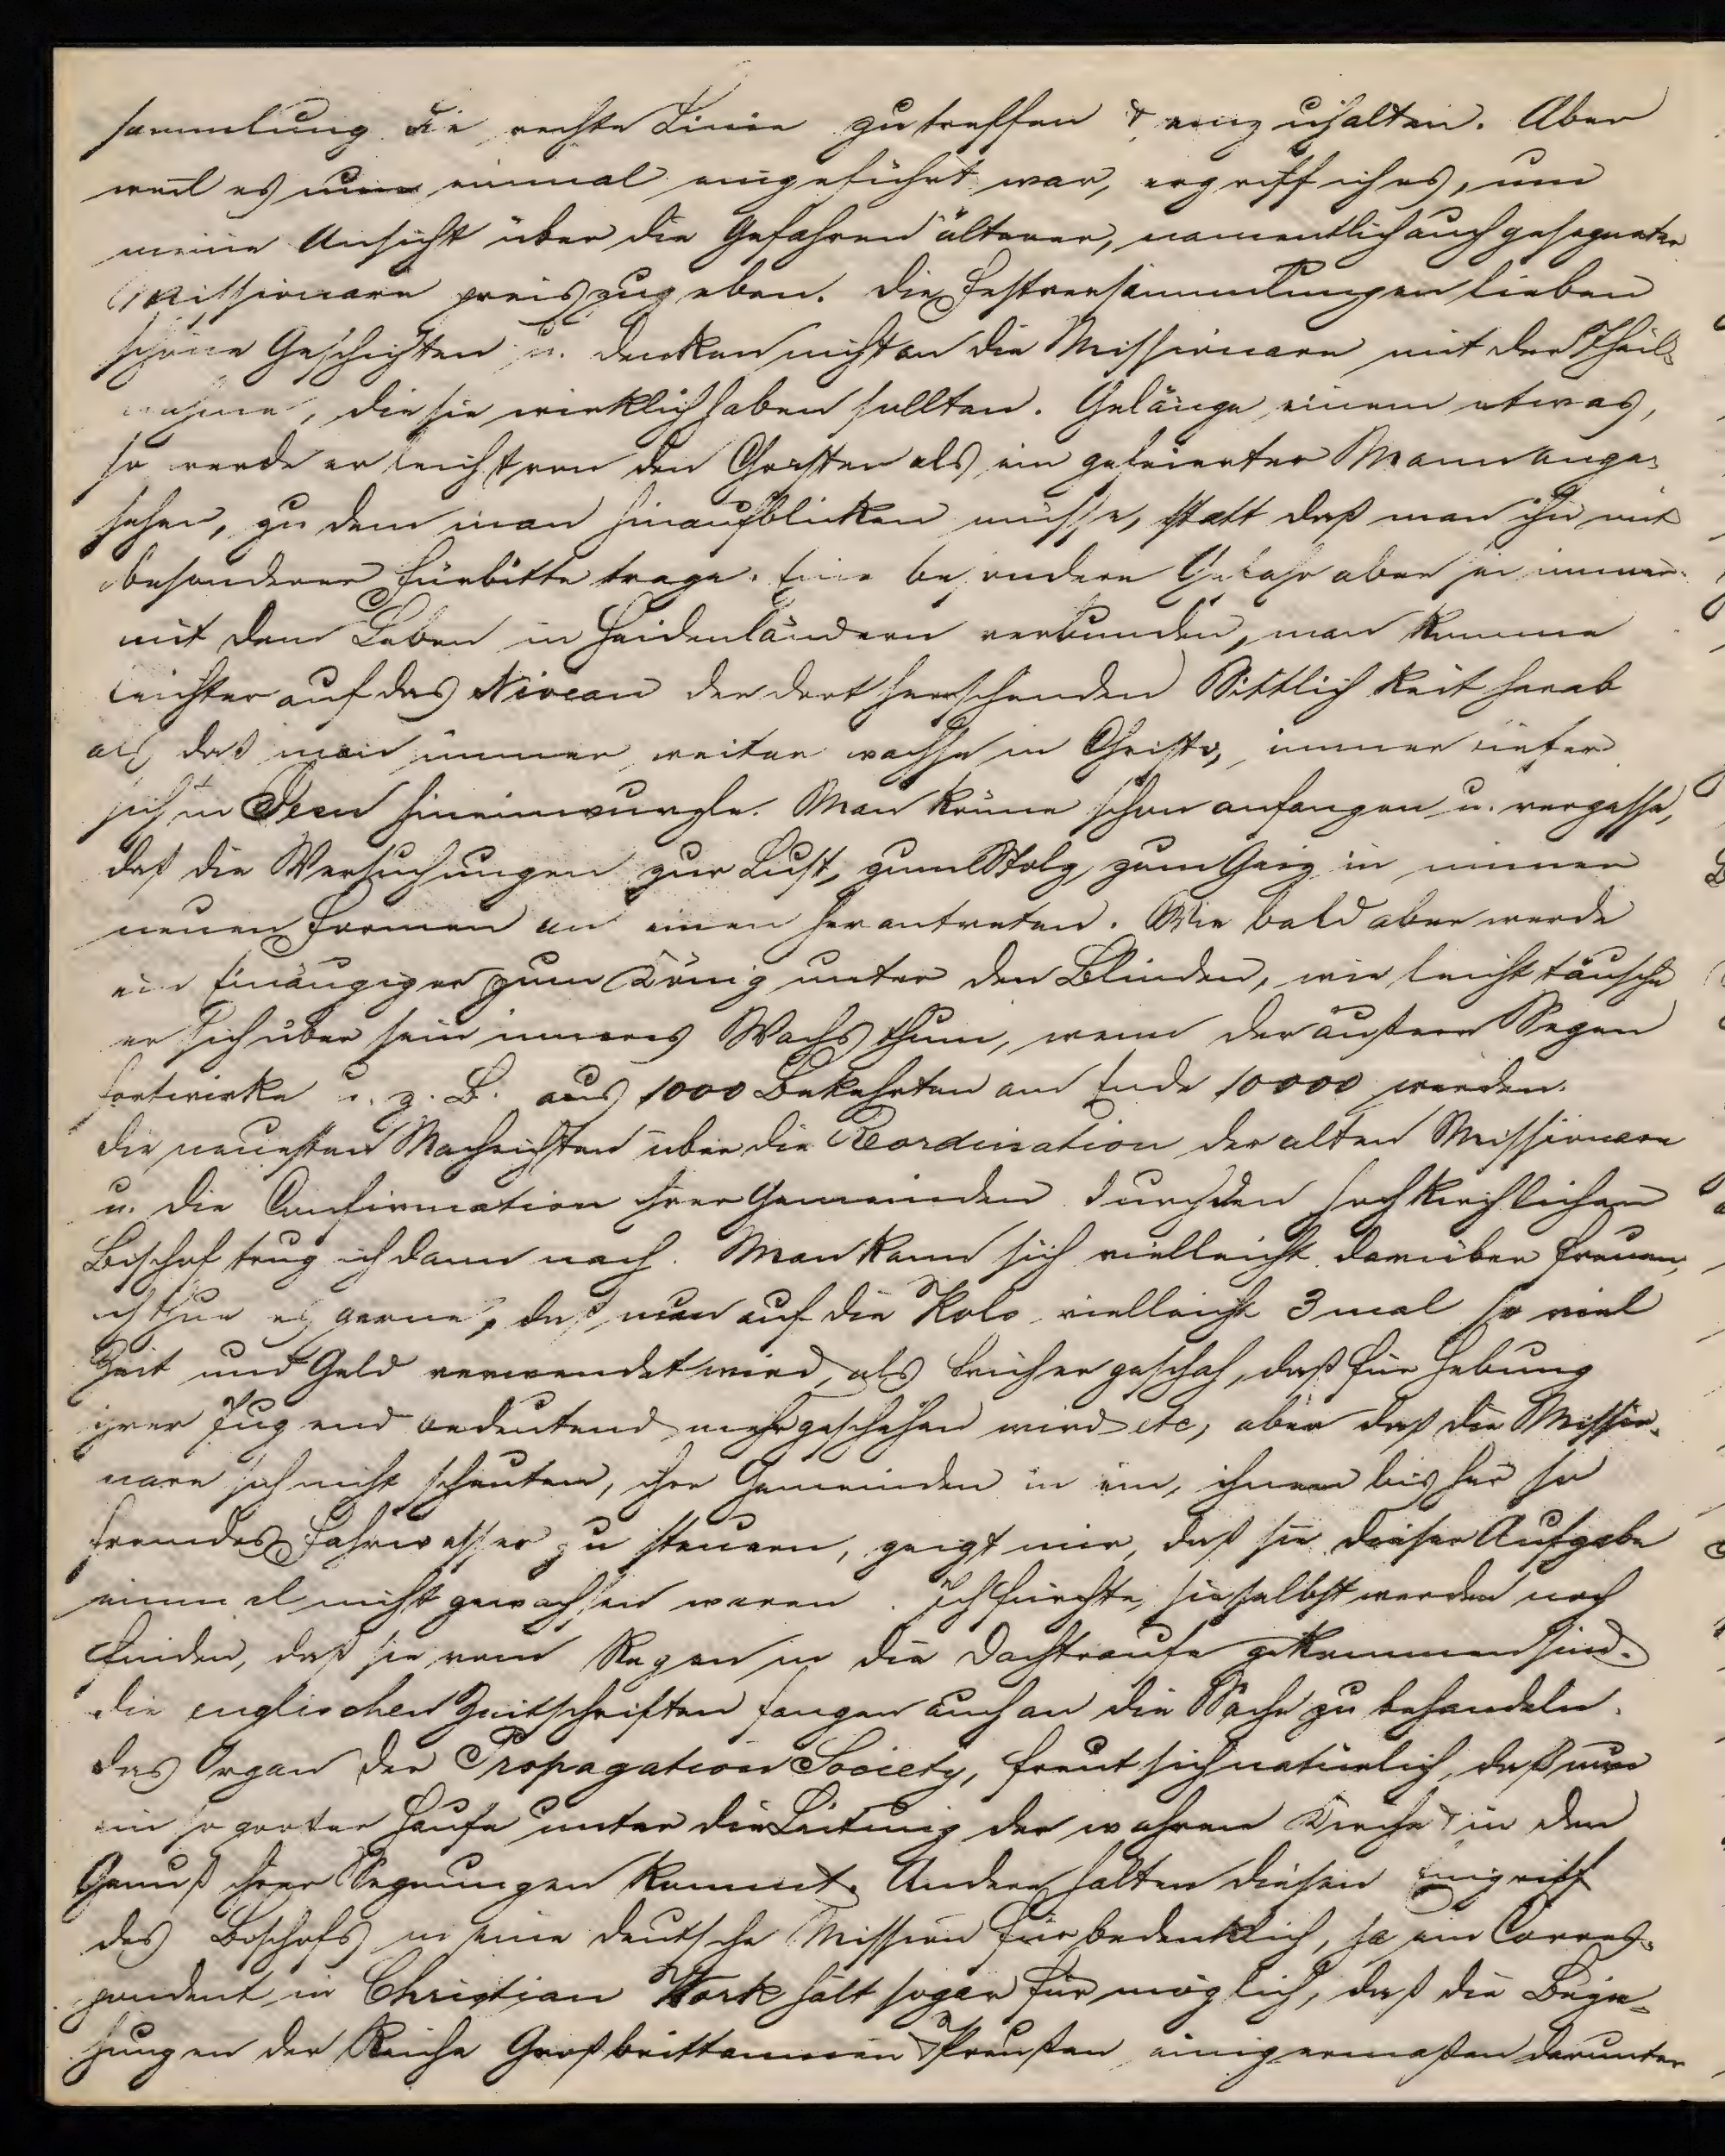 sammlung die rechte Linie zu treffen & einzuhalten. Aber
weil es nun einmal eingeführt war, ergriff ich es, um
meine Ansicht über die Gefahren älterer, namentlich auch gesegneter
Missionare preiszugeben. Die Festversammlungen lieben
schöne Geschichten u. denken nicht an die Missionare mit der Theil-
nahme, die sie wirklich haben sollten. Gelänge einem etwas,
so werde er leicht von den Christen als ein gefeierter Mann ange-
sehen, zu dem man hinaufblicken müsse, statt daß man ihn mit
besonderer Fürbitte trage. Eine besondere Gefahr aber sei immer
mit dem Leben in Heidenländern verbunden, man komme
leichter auf das Niveau der dort herrschenden Sittlichkeit herab
als daß man immer weiter wachse in Christo, immer tiefer
sich in Ihn hineinwurzle. Man könne schon anfangen u. vergesse,
daß die Versuchungen zur Lust, zum Stolz, zum Geiz in immer
neuen Formen an einen herantreten. Wie bald aber werde
ein Einäugiger zum König unter den Blinden, wie leicht täusche
er sich über sein inneres Wachsthum, wenn der äußere Segen
fortwirke u. z. B. aus 1000 Bekehrten am Ende 10000 werden.
Die neuesten Nachrichten über die Reordination der alten Missionare
u. die Confirmation ihrer Gemeinden durch den hochkirchlichen
Bischof trug ich dann nach. Man kann sich vielleicht darüber freuen,
ich thue es gerne, daß nun auf die Kols vielleicht 3 mal so viel
Zeit und Geld verwendet wird, als früher geschah, daß für Hebung
ihrer Jugend bedeutend mehr geschehen wird etc, aber daß die Missio-
nare sich nicht scheuten, ihre Gemeinden in ein, ihnen bisher so
fremdes Fahrwasser zu steuern, zeigt mir, daß sie dieser Aufgabe
einmal nicht gewachsen waren. Ich fürchte, sie selbst werden noch
finden, daß sie vom Regen in die Dachtraufe gekommen sind.
Die englischen Zeitschriften fangen auch an die Sache zu behandeln.
Das Organ der Propagation Society, freut sich natürlich, daß nun
ein so großer Haufe unter die Leitung der wahren Kirche & in den
Genuß ihrer Segnungen kommt. Andere halten diesen Eingriff
des Bischofs in eine deutsche Mission für bedenklich, ja ein Corres-
pondent in Christian Work hält sogar für möglich, daß die Bezie-
hungen der Reiche Großbrittannien & Preußen einigermaßen darunter